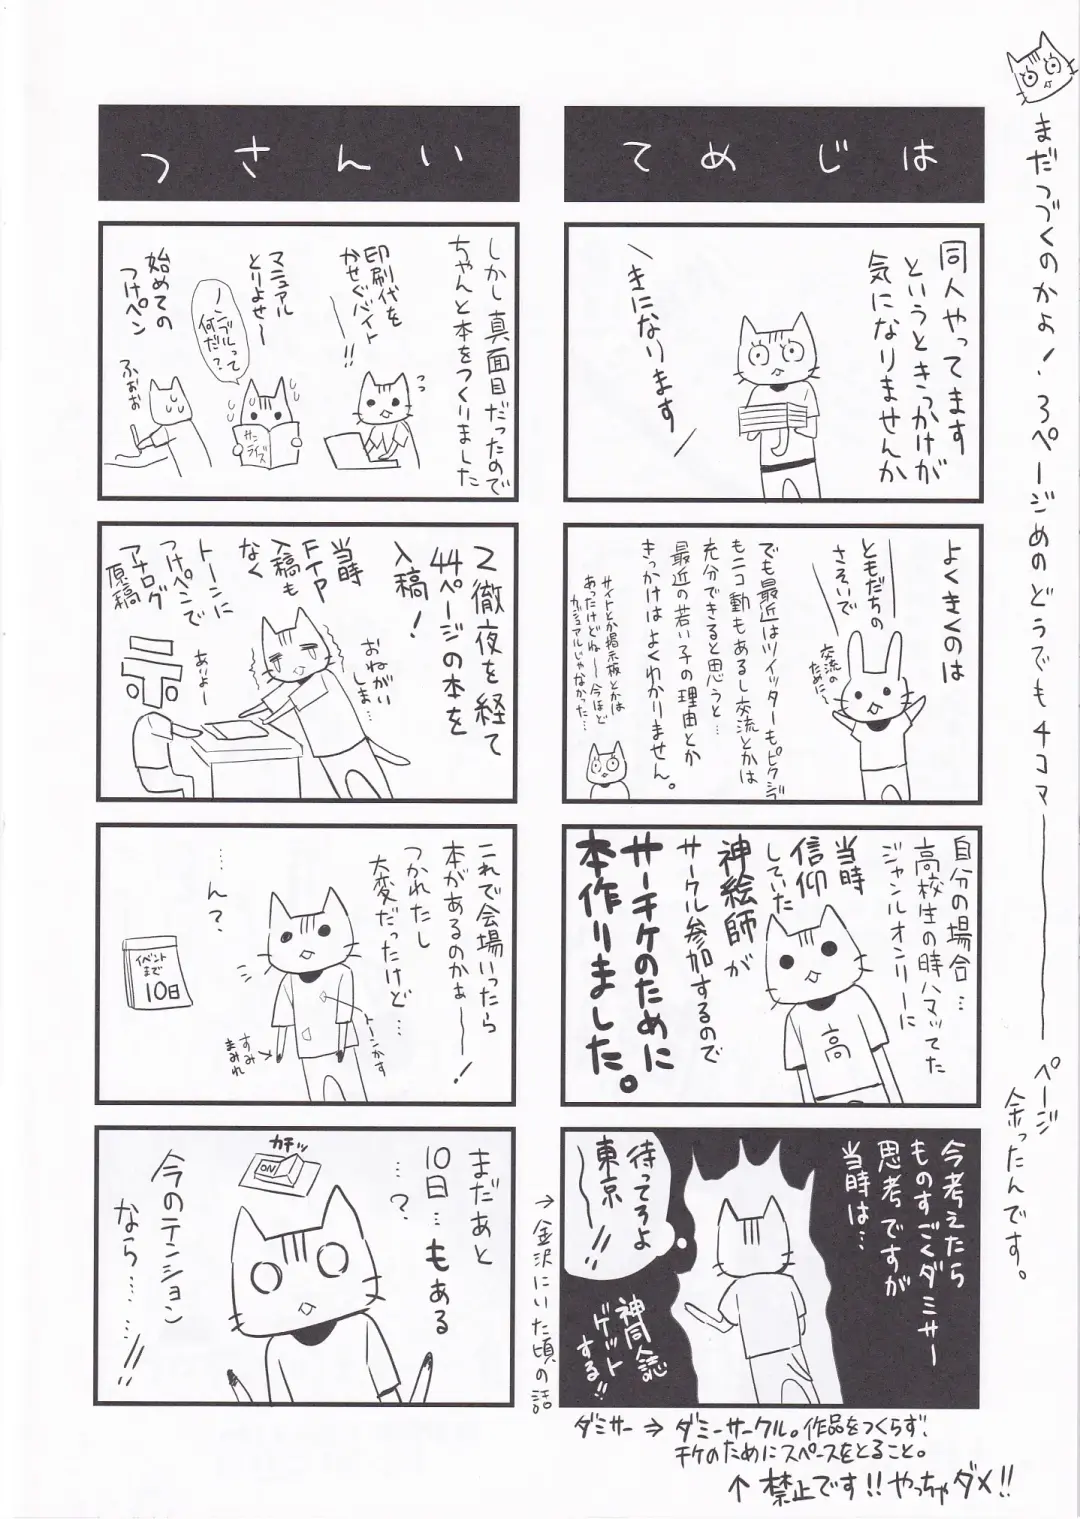 まだつづくのかよ！3ページめのどうでも4コマ――――
ページ
余ったんです。
はじめて
同人やってます
というときっかけが
気になりませんか
＼きになります／
よくきくのは
ともだちの
さそいで
交流の
ために、
でも最近はツイッターもピクシブ
もニコ動もあるし交流とかは
充分できると思うと…
最近の若い子の理由とか
きっかけはよくわかりません。
サイトとか掲示板とかは
あったけどねー今ほど
カジュアルじゃなかった…
自分の場合…
高校生の時ハマッてた
ジャンルオンリーに
当時
信仰
していた
神絵師が
サークル参加するので
サーチケのために
本作りました。
高
今考えたら
ものすごくダミサー
思考ですが
当時は…
待ってろよ
東京――!!
神同人誌
ゲット
する!!
→金沢にいた頃の話
ダミサー → ダミーサークル。作品をつくらず、
チケのためにスペースをとること。
↑禁止です!!やっちゃダメ!!
いんさつ
しかし真面目だったので
ちゃんと本をつくりました
印刷代を
かせぐバイト
――!!
マニュアル
とりよせ〜
ノンブルって
何だ？
サンライズ
始めての
つけペン
ふぉぉ
2徹夜を経て
44ページの本を
入稿！
当時
FTP
入稿も
なく
トーンに
つけペンで
アナログ
原稿
おねがい
しま…
ありよー
これで会場いったら
本があるのかぁ――！
つかれたし
大変だったけど…
……ん？
イベント
まで
10日
トーンかす
すみ
まみれ
まだあと
10日…もある
…？
カチッ
ON
今のテンション
なら……!!